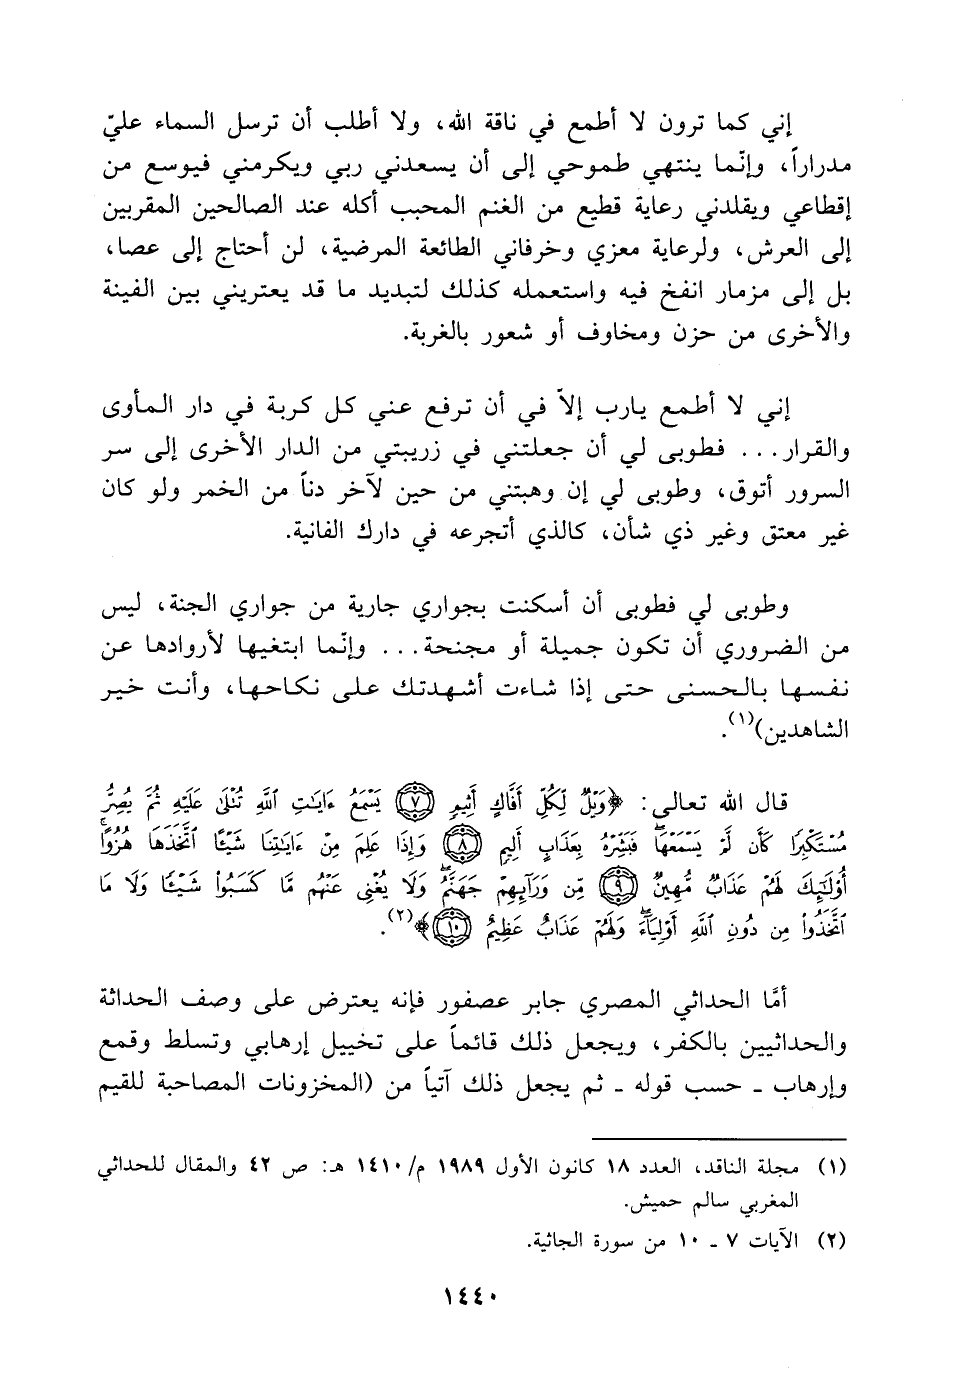 إني كما ترون لا أطمع في ناقة الله، ولا أطلب أن ترسل السماء عليّ
مدراراً، وإنّما ينتهي طموحي إلى أن يسعدني ربي ويكرمني فيوسع من
إقطاعي ويقلدني رعاية قطيع من الغنم المحبب أكله عند الصالحين المقربين
إلى العرش، ولرعاية معزي وخرفاني الطائعة المرضية، لن أحتاج إلى عصا،
بل إلى مزمار انفخ فيه واستعمله كذلك لتبديد ما قد يعتريني بين الفينة
والأخرى من حزن ومخاوف أو شعور بالغربة.
إني لا أطمع يارب إلاّ في أن ترفع عني كل كربة في دار المأوى
والقرار... فطوبى لي أن جعلتني في زريبتي من الدار الأخرى إلى سر
السرور أتوق، وطوبى لي إن وهبتني من حين لآخر دناً من الخمر ولو كان
غير معتق وغير ذي شأن، كالذي أتجرعه في دارك الفانية.
وطوبى لي فطوبى أن أسكنت بجواري جارية من جواري الجنة، ليس
من الضروري أن تكون جميلة أو مجنحة... وإنّما ابتغيها لأروادها عن
نفسها بالحسنى حتى إذا شاءت أشهدتك على نكاحها، وأنت خير
الشاهدين)(١).
قال الله تعالى: ﴿وَيْلٌ لِّكُلِّ أَفَّاكٍ أَثِيمٍ ٧ يَسْمَعُ ءَايَٰتِ ٱللَّهِ تُتْلَىٰ عَلَيْهِ ثُمَّ يُصِرُّ
مُسْتَكْبِرًا كَأَن لَّمْ يَسْمَعْهَا ۖ فَبَشِّرْهُ بِعَذَابٍ أَلِيمٍ ٨ وَإِذَا عَلِمَ مِنْ ءَايَٰتِنَا شَيْـًٔا ٱتَّخَذَهَا هُزُوًا ۚ
أُو۟لَٰٓئِكَ لَهُمْ عَذَابٌ مُّهِينٌ ٩ مِّن وَرَآئِهِمْ جَهَنَّمُ ۖ وَلَا يُغْنِى عَنْهُم مَّا كَسَبُوا۟ شَيْـًٔا وَلَا مَا
ٱتَّخَذُوا۟ مِن دُونِ ٱللَّهِ أَوْلِيَآءَ ۖ وَلَهُمْ عَذَابٌ عَظِيمٌ ١٠﴾(٢).
أمّا الحداثي المصري جابر عصفور فإنه يعترض على وصف الحداثة
والحداثيين بالكفر، ويجعل ذلك قائماً على تخييل إرهابي وتسلط وقمع
وإرهاب ـ حسب قوله ـ ثم يجعل ذلك آتياً من (المخزونات المصاحبة للقيم
(١) مجلة الناقد، العدد ١٨ كانون الأول ١٩٨٩ م/١٤١٠ هـ: ص ٤٢ والمقال للحداثي
المغربي سالم حميش.
(٢) الآيات ٧ ـ ١٠ من سورة الجاثية.
١٤٤٠